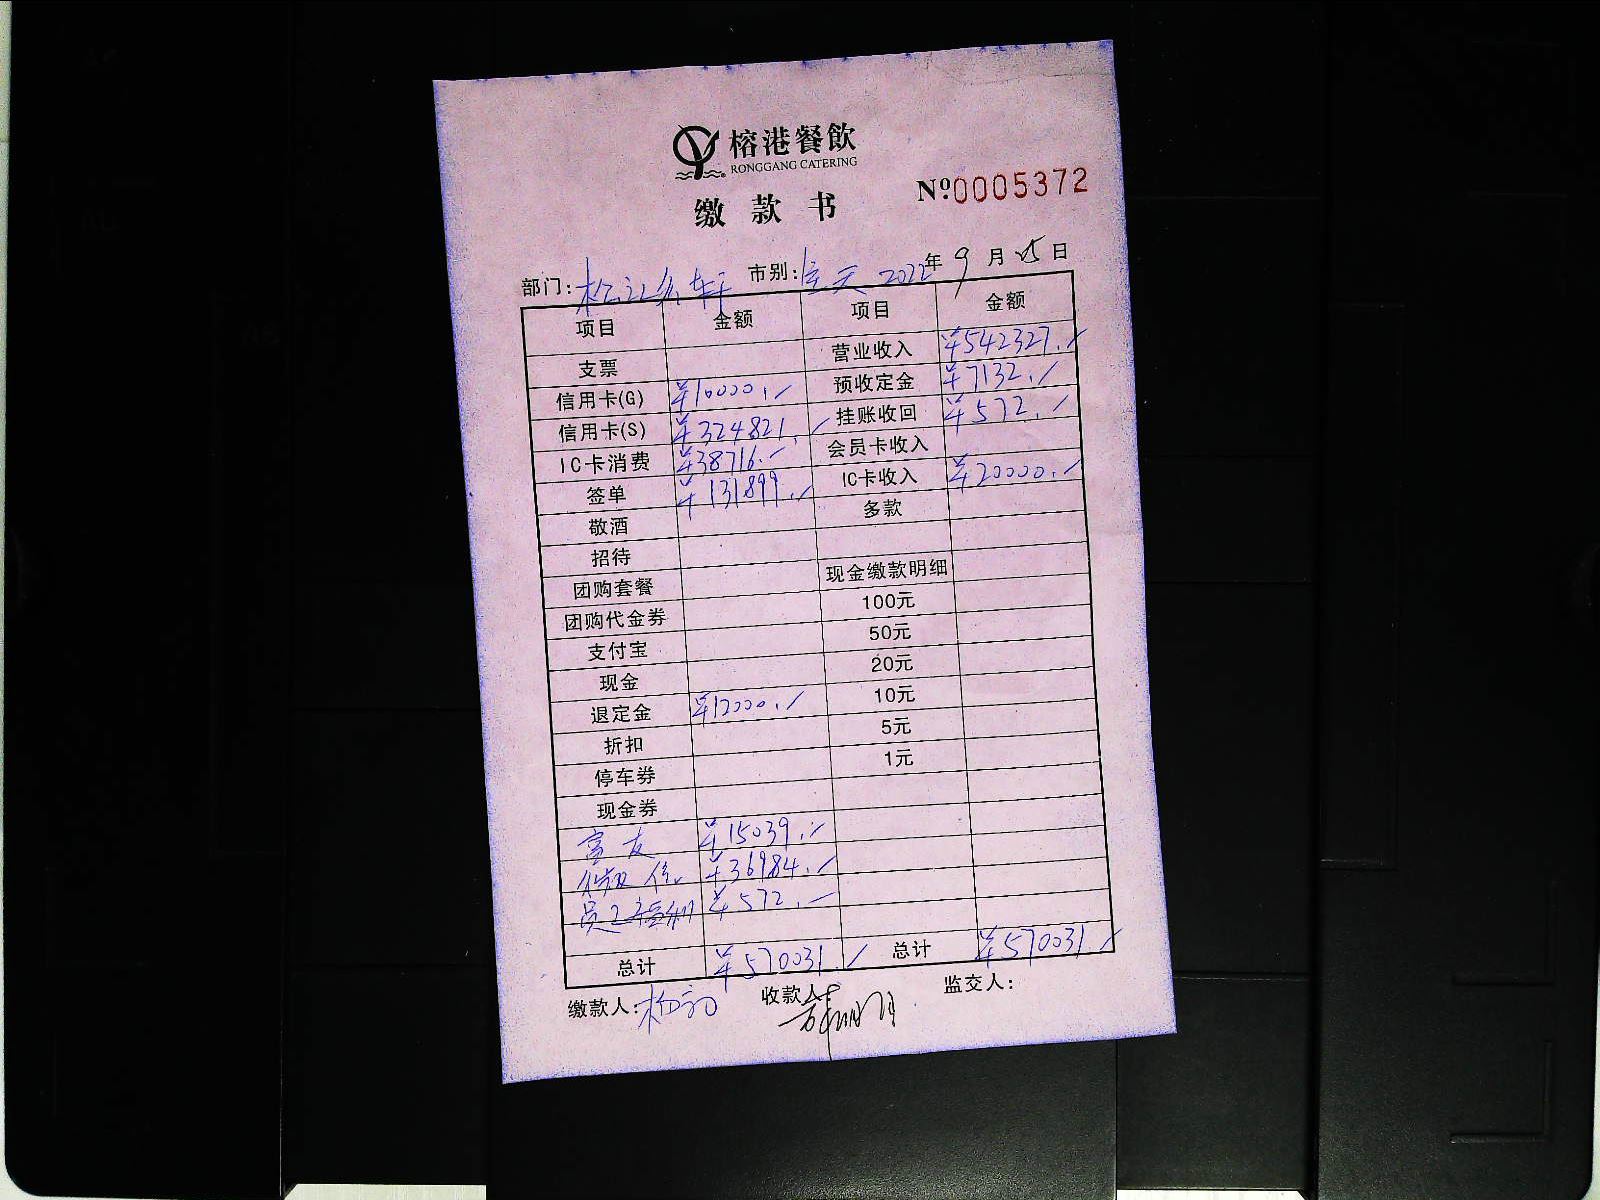 榕港餐飲
RONGGANG CATERING
缴款书 Nº0005372
部门: 市别: 全天 2022年9月15日
项目 金额 项目 金额
支票 营业收入 ¥542327.
信用卡(G) ¥10000. 预收定金 ¥7132.
信用卡(S) ¥324821. 挂账收回 ¥572.
IC卡消费 ¥38716. 会员卡收入
签单 ¥131899. IC卡收入 ¥20000.
敬酒 多款
招待
团购套餐 现金缴款明细
团购代金券 100元
支付宝 50元
现金 20元
退定金 ¥12000. 10元
折扣 5元
停车券 1元
现金券
富友 ¥15039.
¥36984.
员工福利 ¥572.
总计 ¥570031. 总计 ¥570031
缴款人: 收款人: 监交人: